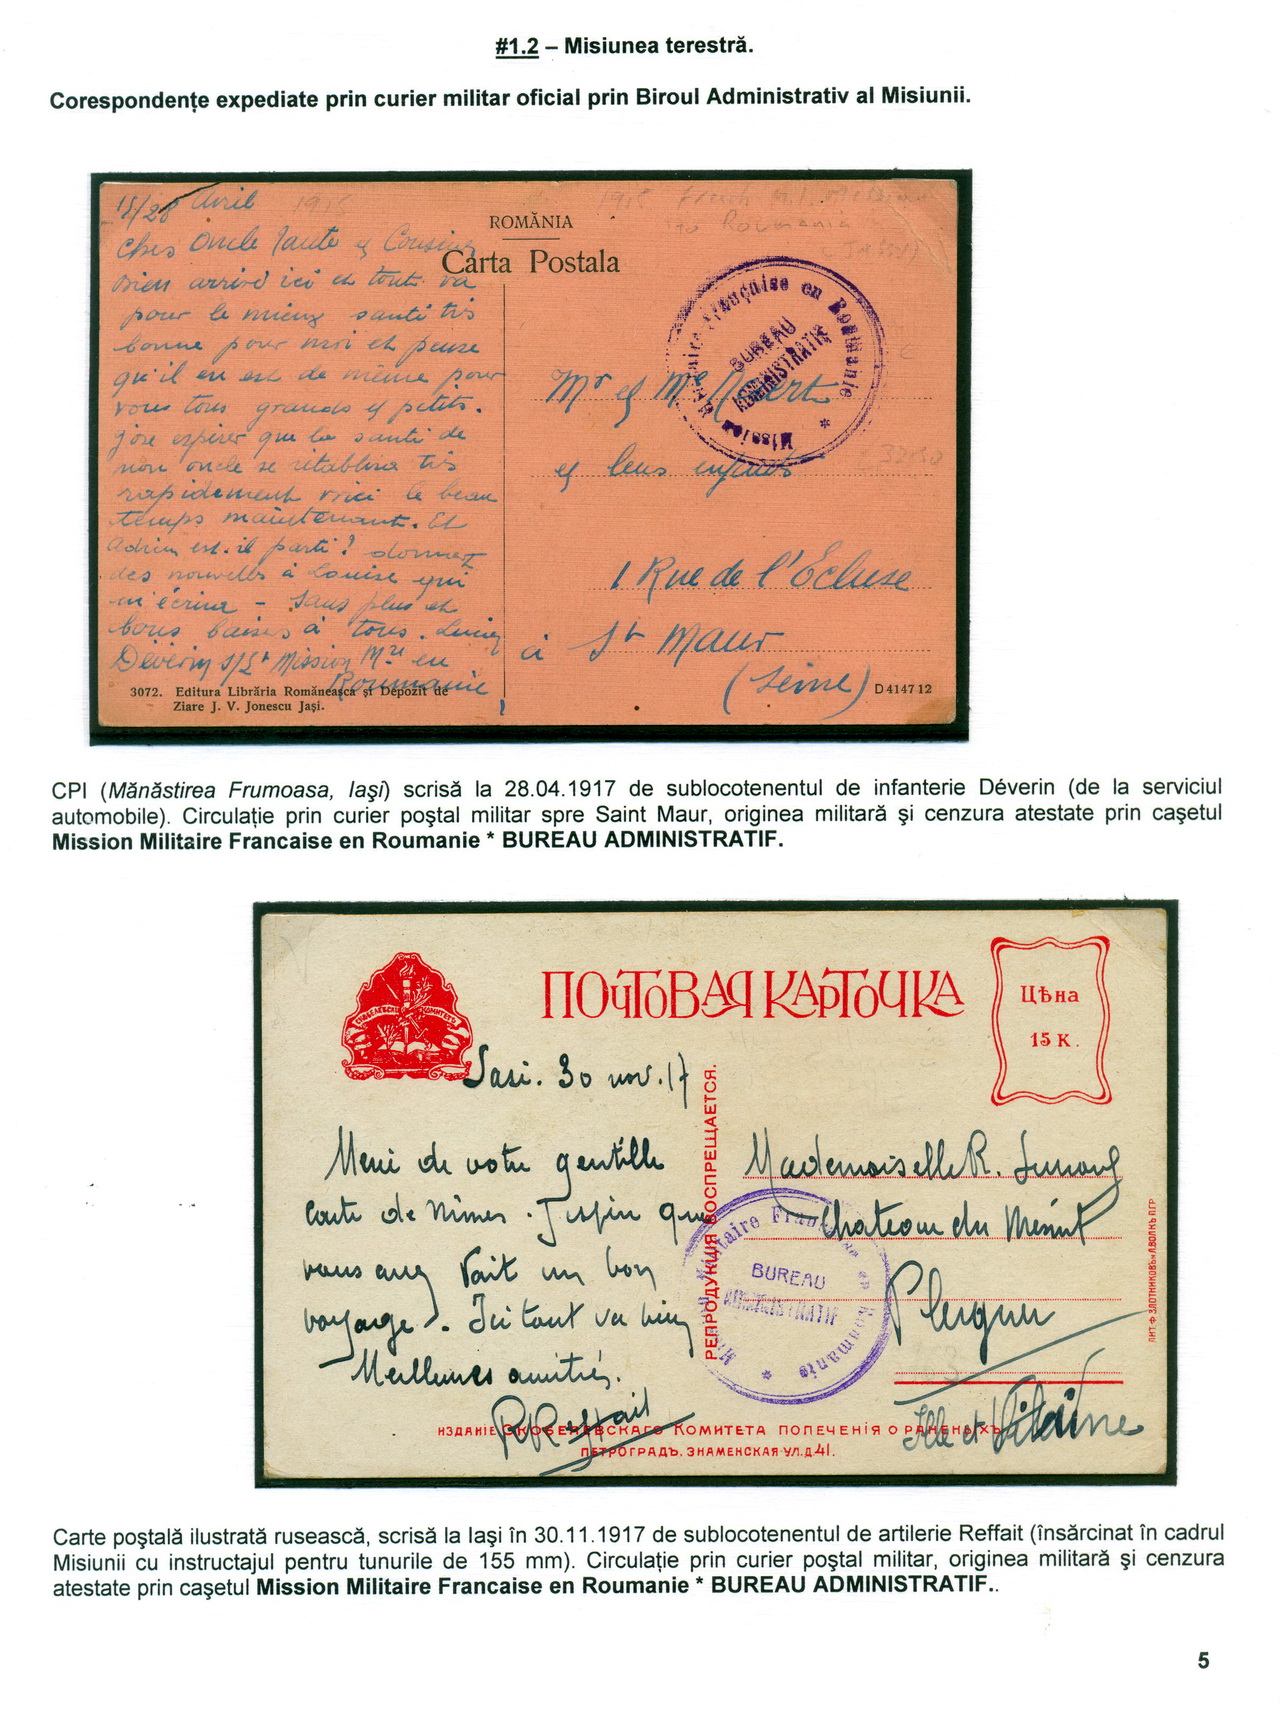 #1.2 – Misiunea terestră.
Corespondențe expediate prin curier militar oficial prin Biroul Administrativ al Misiunii.
15/28 Avril 1918
Chers Oncle Tante et Cousines
Bien arrivé ici et tout va
pour le mieux santé très
bonne pour moi et pense
qu'il en est de même pour
vous tous grands et petits.
J'ose espérer que la santé de
mon oncle se rétablira très
rapidement voici le beau
temps maintenant. Et
Adrien est-il parti? donnez
des nouvelles à Louise qui
m'écrira – Sans plus et
bons baisers à tous. Lucien
Déverin S/Lt Mission Mre en
Roumanie
ROMÂNIA
Carta Postala
Mission Militaire Française en Roumanie *
BUREAU
ADMINISTRATIF
Mr et Me
et leurs enfants
1 Rue de l'Ecluse
à St Maur
(Seine)
3072. Editura Librăria Românească și Depozit de
Ziare J. V. Jonescu Jași.
D 41 47 12
CPI (Mănăstirea Frumoasa, Iaşi) scrisă la 28.04.1917 de sublocotenentul de infanterie Déverin (de la serviciul
automobile). Circulaţie prin curier poştal militar spre Saint Maur, originea militară şi cenzura atestate prin caşetul
Mission Militaire Francaise en Roumanie * BUREAU ADMINISTRATIF.
СКОБЕЛЕВСКІЙ КОМИТЕТЪ
ПОЧТОВАЯ КАРТОЧКА
Цѣна
15 К.
Jasi. 30 nov. 17
Merci de votre gentille
carte de Nimes. J'espère que
vous avez fait un bon
voyage. Ici tout va bien
Meilleures amitiés.
RReffait
РЕПРОДУКЦІЯ ВОСПРЕЩАЕТСЯ.
Mademoiselle R.
Chateau du Mesnil
Plerguer
Ille et Vilaine
Mission Militaire Française en Roumanie *
BUREAU
ADMINISTRATIF
ЛИТ. Ф. ЗЛОТНИКОВЪ и А. ВОЛКЪ П.Г.Р
ИЗДАНІЕ СКОБЕЛЕВСКАГО КОМИТЕТА ПОПЕЧЕНІЯ О РАНЕНЫХЪ
ПЕТРОГРАДЪ. ЗНАМЕНСКАЯ УЛ. Д. 41.
Carte poştală ilustrată rusească, scrisă la Iaşi în 30.11.1917 de sublocotenentul de artilerie Reffait (însărcinat în cadrul
Misiunii cu instructajul pentru tunurile de 155 mm). Circulaţie prin curier poştal militar, originea militară şi cenzura
atestate prin caşetul Mission Militaire Francaise en Roumanie * BUREAU ADMINISTRATIF..
5